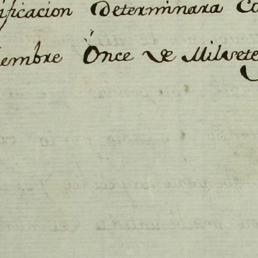 ificacion Determinara Co
iembre Once de Mil sete